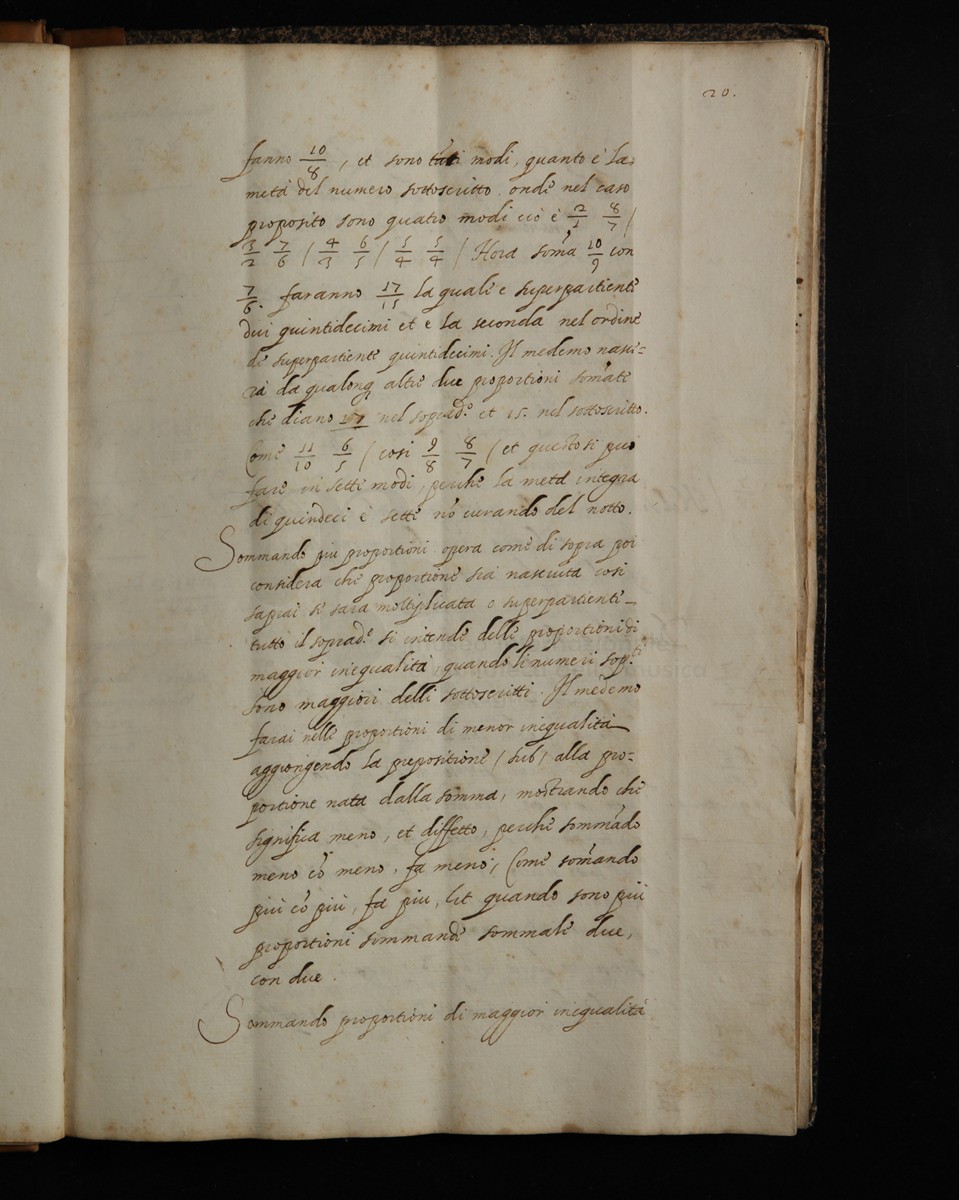 20.
fanno 10/8 , et sono tāti modi, quanto è la
metà del numero sottoscritto. onde nel caso
proposito sono quatro modi ciò è 2/1 8/7 /
3/2 7/6 / 4/3 6/5 / 5/4 5/4 / Hora somā 10/9 con
7/6. faranno 17/15 la quale e superpartiente
dui quintidecimi et e la seconda nel ordine
di superpartiente quintidecimi. Il medemo nasce-
rà da qualonq altre due proportioni somāte
che diano 17 nel soprad.º et 15. nel sottoscritto.
Come 11/10 6/5 / cosi 9/8 8/7 / et questo si può
fare in sette modi, perche la metà integra
di quindeci è sette nō curando del rotto.
Sommando più proportioni opera come di sopra poi
considera che proportione sia nasciuta cosi
saprai se sarà moltiplicata o superpartiente
tutto il soprad.º si intende delle proportioni di
maggior inequalità, quando li numeri sop.ti
sono maggiori delli sottoscritti. Il medemo
farai nelle proportioni di menor inequalità
aggiongendo la prepositione / sub / alla pro-
portione nata dalla somma, mostrando che
significa meno, et diffetto, perche sommādo
meno cō meno, fa meno, Come somāndo
più cō più, fa più, Et quando sono più
proportioni sommande sommale due,
con due.
Sommando proportioni di maggior inequalità